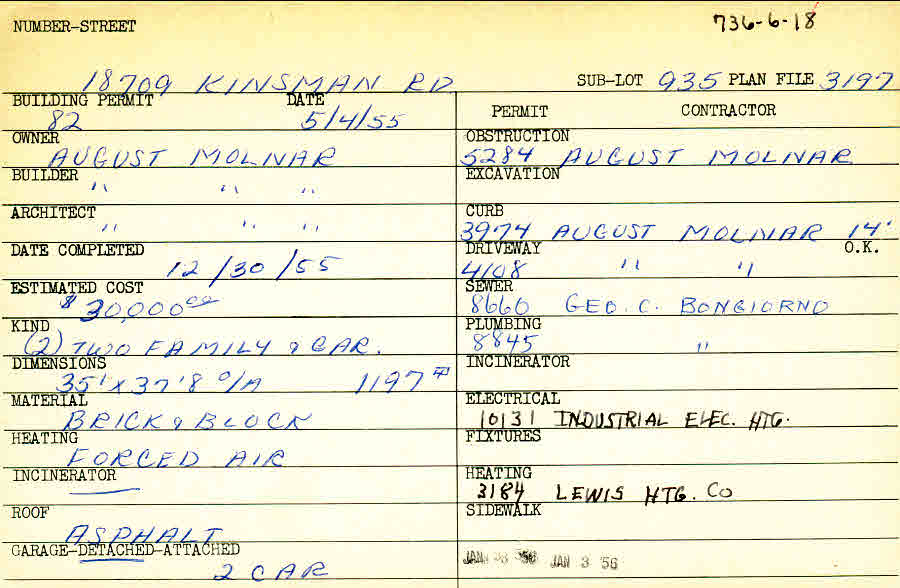 NUMBER-STREET
736-6-18
18709 KINSMAN RD. SUB-LOT 935 PLAN FILE 3197
BUILDING PERMIT DATE
82 5/4/55
OWNER
AUGUST MOLNAR
BUILDER
" " "
ARCHITECT
" " "
DATE COMPLETED
12/30/55
ESTIMATED COST
$30,000.00
KIND
(2) TWO FAMILY & GAR.
DIMENSIONS
35' x 37'8 O/A 1197
MATERIAL
BRICK & BLOCK
HEATING
FORCED AIR
INCINERATOR
ROOF
ASPHALT
GARAGE-DETACHED-ATTACHED
2 CAR
PERMIT CONTRACTOR
OBSTRUCTION
5284 AUGUST MOLNAR
EXCAVATION
CURB
3974 AUGUST MOLNAR 14'
DRIVEWAY O.K.
4108 " "
SEWER
8660 GEO. C. BONGIORNO
PLUMBING
8845 "
INCINERATOR
ELECTRICAL
10131 INDUSTRIAL ELEC. HTG.
FIXTURES
HEATING
3184 LEWIS HTG. CO
SIDEWALK
JAN 3 56 JAN 3 56